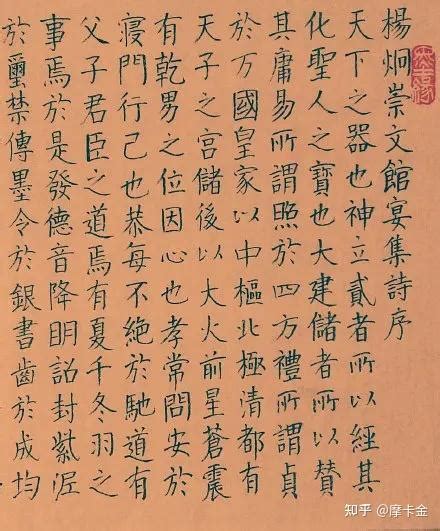 楊炯崇文館宴集詩序
天下之器也神立貳者所以經其
化聖人之寶也大建儲者所以贊
其庸易所謂照於四方禮所謂貞
於万國皇家以中樞北極清都有
天子之宮儲後以大火前星蒼震
有乾男之位因心也孝常問安於
寢門行己也恭每不絕於馳道有
父子君臣之道焉有夏千冬羽之
事焉於是發德音降明詔封紫泥
於璽禁傳墨令於銀書齒於成均
知乎 @摩卡金